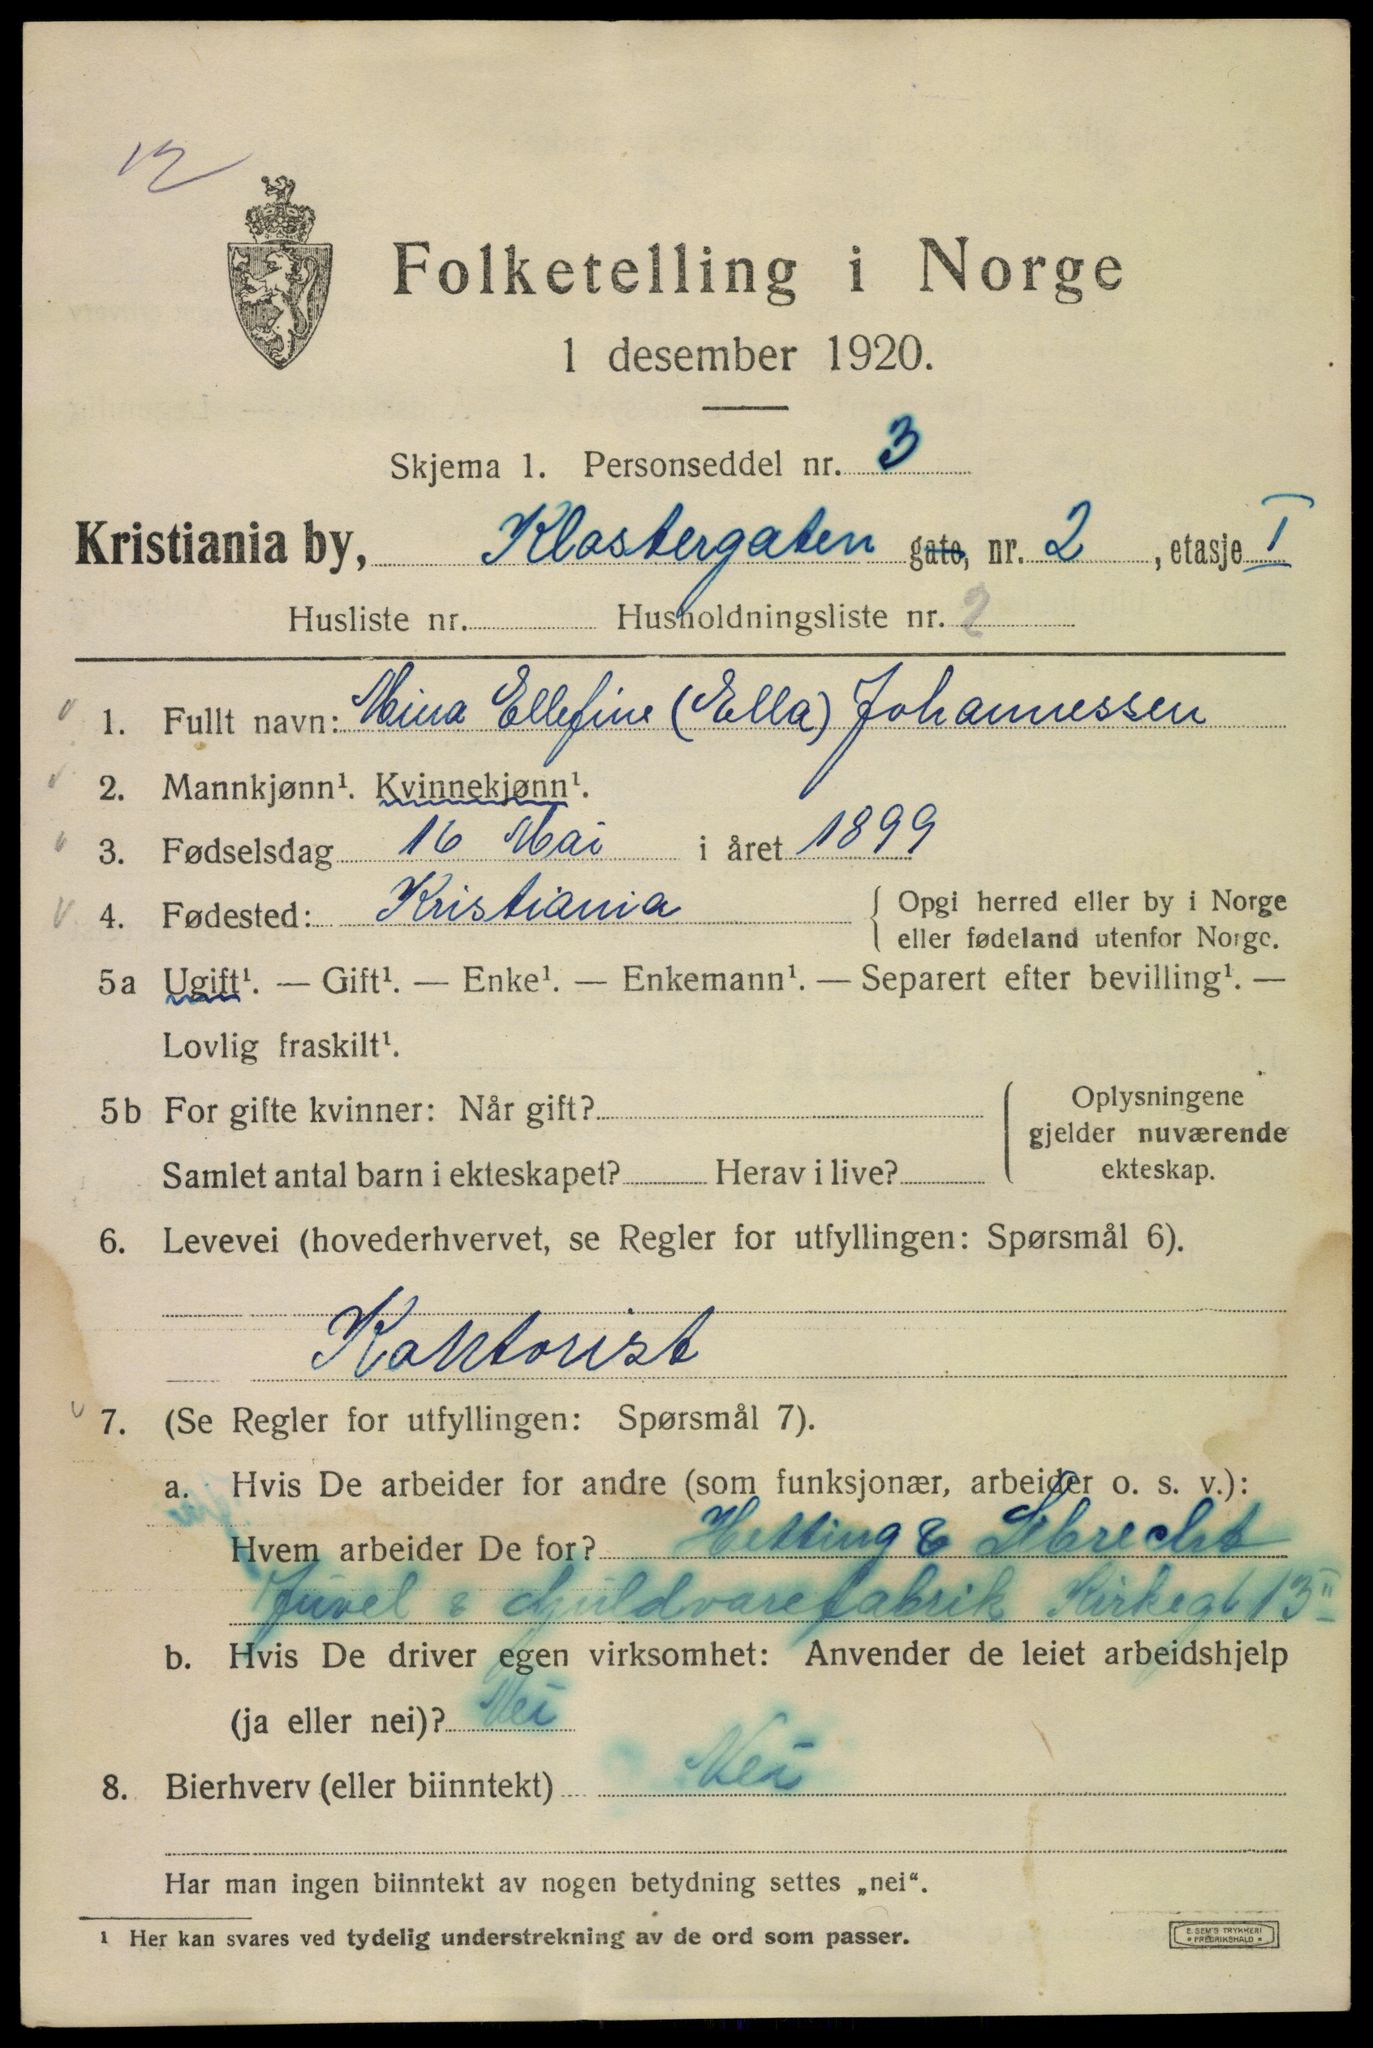 12
Folketelling i Norge
1 desember 1920.
Skjema 1. Personseddel nr. 3
Kristiania by, Klostergaten gate, nr. 2, etasje I
Husliste nr. Husholdningsliste nr. 2
1. Fullt navn: Mina Ellefine (Ella) Johannessen
2. Mannkjønn¹. Kvinnekjønn¹.
3. Fødselsdag 16 Mai i året 1899
4. Fødested: Kristiania { Opgi herred eller by i Norge
eller fødeland utenfor Norge.
5a Ugift¹. — Gift¹. — Enke¹. — Enkemann¹. — Separert efter bevilling¹. —
Lovlig fraskilt¹.
5b For gifte kvinner: Når gift? Oplysningene
gjelder nuværende
Samlet antal barn i ekteskapet? Herav i live? ekteskap.
6. Levevei (hovederhvervet, se Regler for utfyllingen: Spørsmål 6).
Kontorist
7. (Se Regler for utfyllingen: Spørsmål 7).
a. Hvis De arbeider for andre (som funksjonær, arbeider o. s. v.):
Hvem arbeider De for? Hetting & Librecht
Juvel & Guldvarefabrik Kirkegt 13 II
b. Hvis De driver egen virksomhet: Anvender de leiet arbeidshjelp
(ja eller nei)? Nei
8. Bierhverv (eller biinntekt) Nei
Har man ingen biinntekt av nogen betydning settes „nei“.
¹ Her kan svares ved tydelig understrekning av de ord som passer.
E. SEM'S TRYKKERI
* FREDRIKSHALD *